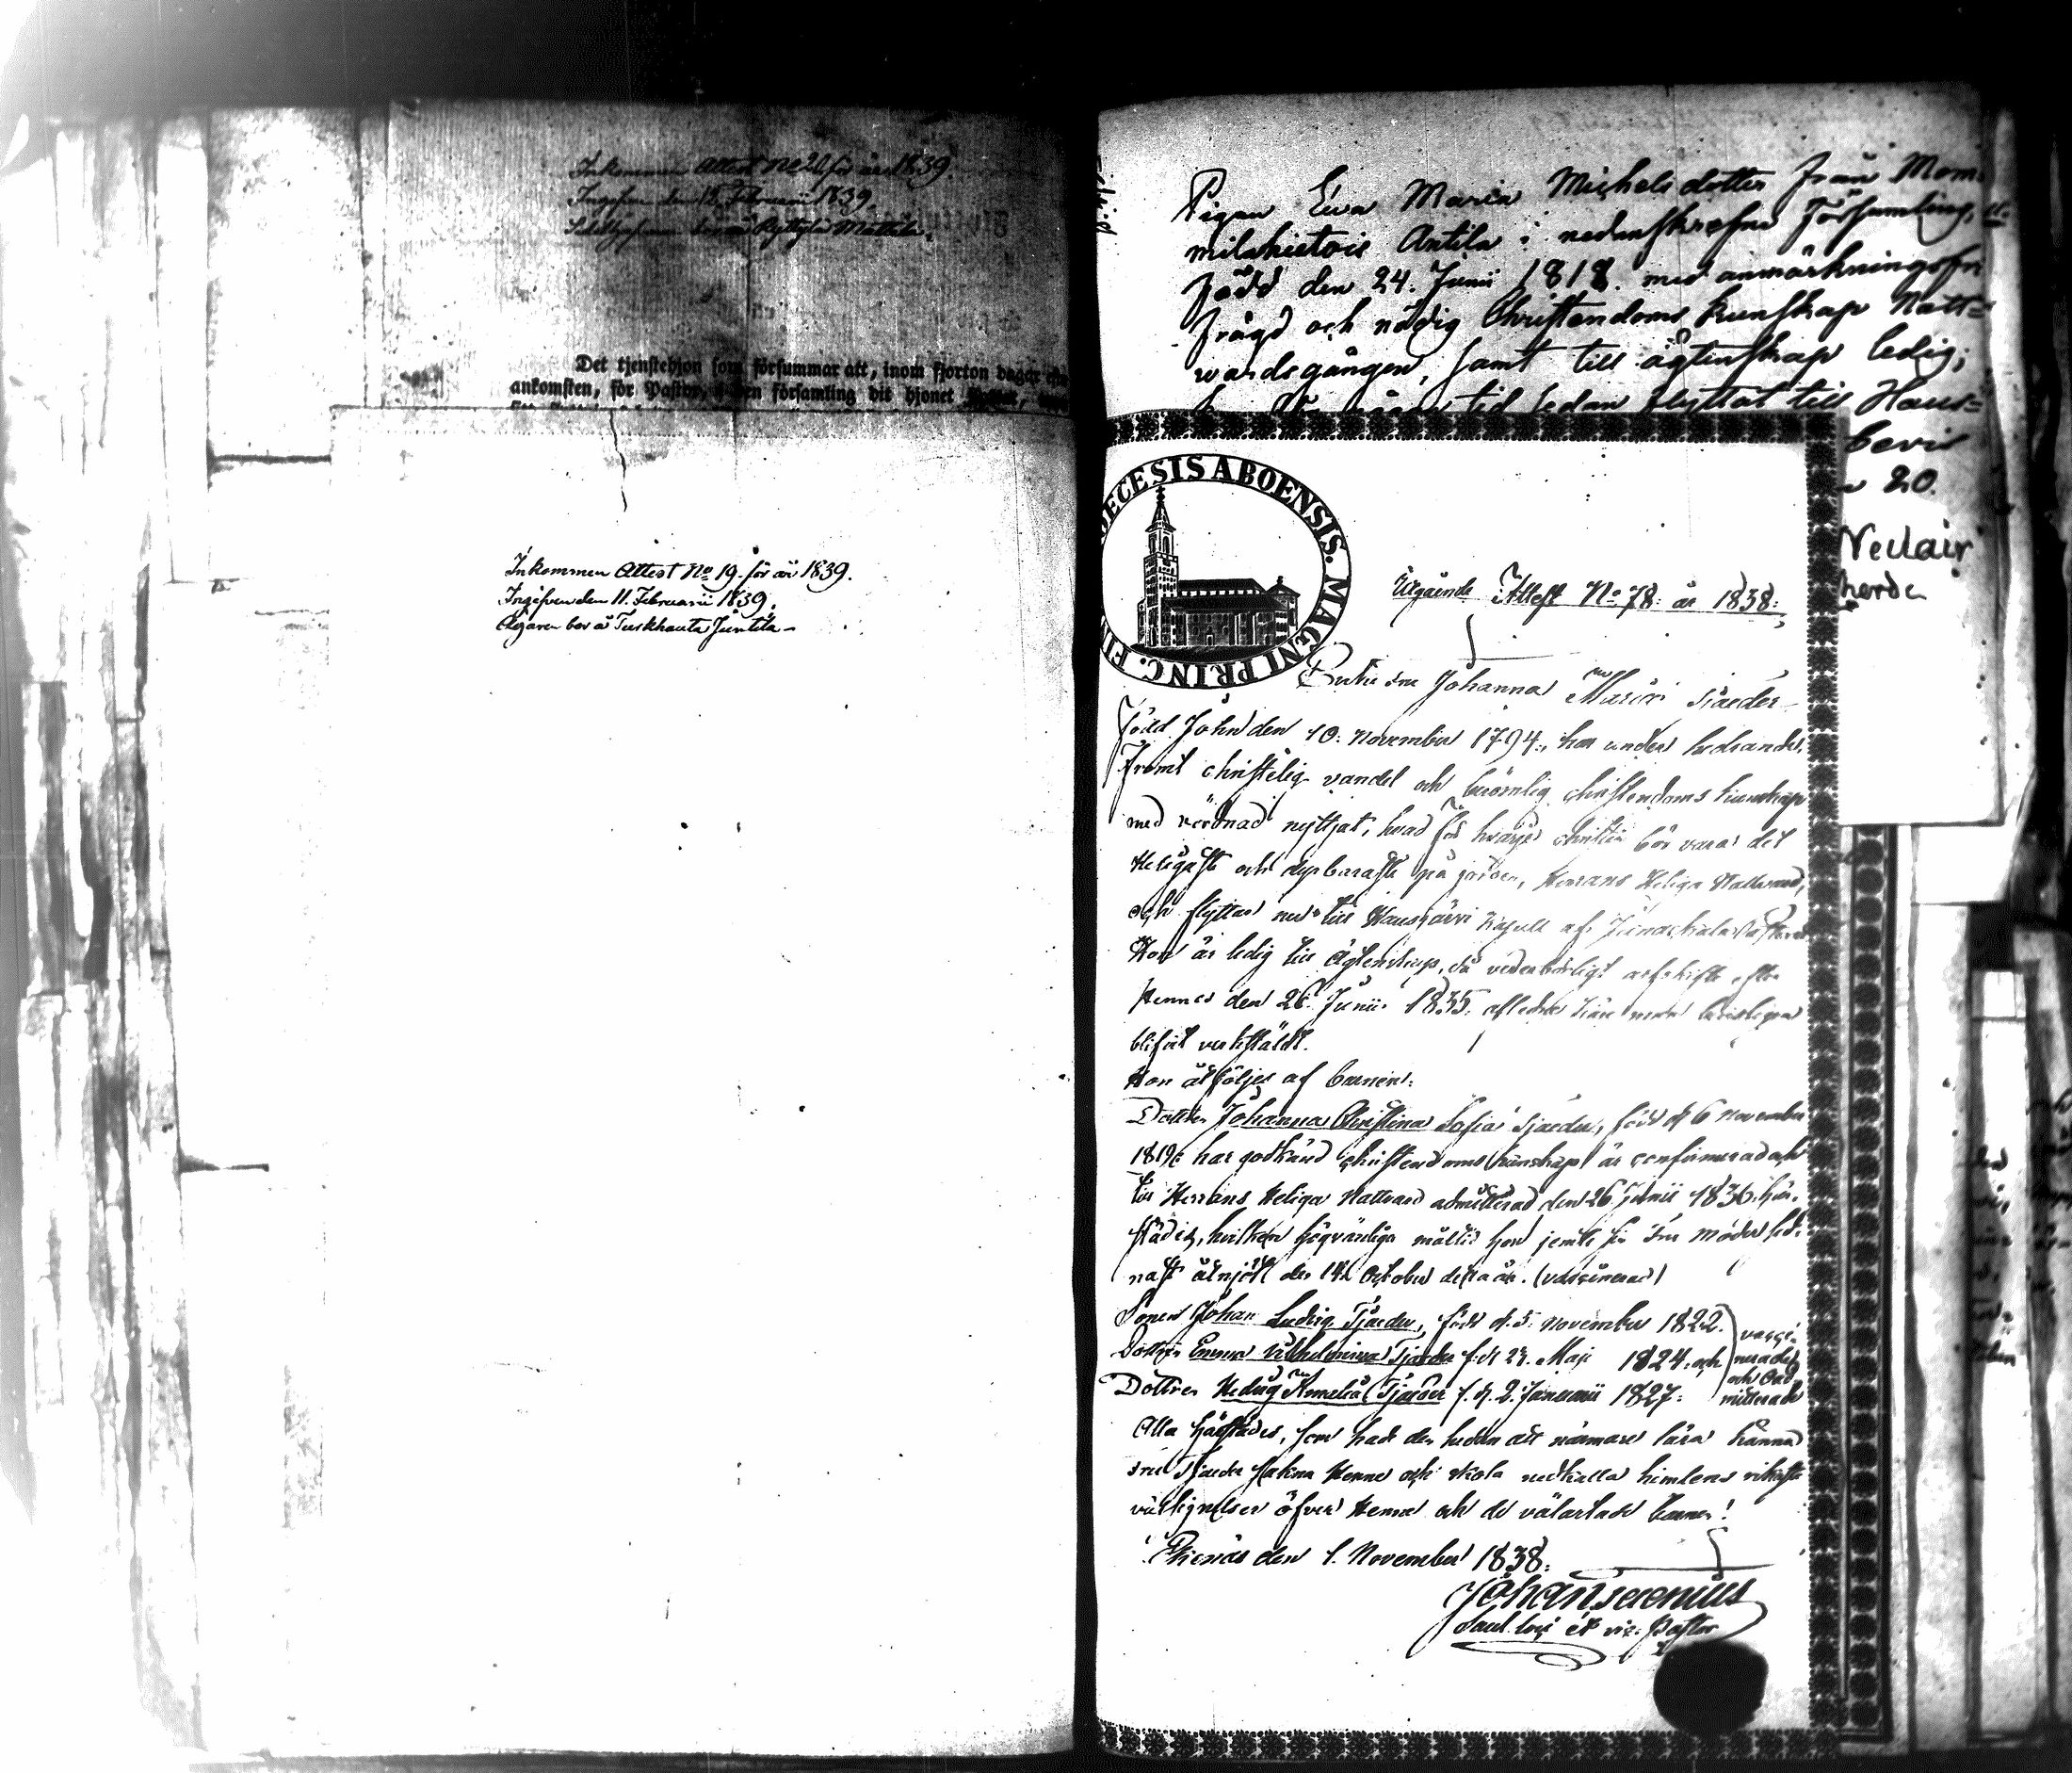 Inkommen Attest No 20 för år 1839.
Ingifven den 18 Februarii 1839.
Mattila.
Det tjenstehjon som försummar att, inom fjorton dagar
ankomsten, för Pastor, i den församling dit hjonet
Inkommen Attest No 19. för år 1839.
Ingifven den 11. Februarii 1839.
Ägaren bor å Turkhauta Juntila
Pigan Eva Maria Michelsdotter från Mom-
milakietois Antila i nedanskrefne Församling,
född den 24. Junii 1818. med anmärkningsfri
frägd och nödig Christendoms kunskap Natt-
vardsgången, samt till ägtenskap ledig;
tid sedan flyttat till Haus-
bevis
20.
DIOECESIS ABOENSIS. MAGNI PRINC. FIN
Utgående Attest No 78: år 1838:
Enke Fru Johanna Maria Tjaeder
född John den 10: November 1794., har under hedrande,
Fromt christelig vandel och berömlig christendoms kunskap
med vördnad nyttjat, hvad för hvarje christen bör vara det
Heligaste och dyrbaraste på jorden, Herrans Heliga Nattvard,
och flyttar nu till Hausjärvi Kapell af
Hon är ledig till Ägtenskap, då vederbörligt arfskifte efter
Hennes den 26. Junii 1835. aflednе
blifvit verkstäldt.
Hon åtföljes af barnen:
Dotter Johanna Christina Sofia Tjaeder, född d. 6 November
1819: har godkänd christendoms kunskap är confirmerad och
till Herrans Heliga Nattvard admitterad den 26 Junii 1836. här-
städes, hvilken högvärdiga måltid hon jemte sin Fru Moder sed-
nast åtnjöt den 14. October detta år. (vaccinerad)
Sonen Johan Ludvig Tjaeder, född d. 5. November 1822.
Dotter Emma Vilhelmina Tjaeder f. d. 29. Maji 1824. och
Dotter Hedvig Amelia Tjaeder f. d. 2. Januarii 1827:
vacci-
nerade
och
mitterade
Alla härstädes, som hade den hedern att närmare lära känna
Fru Tjaeder sakna Henne och skola nedkalla himlens rikaste
välsignelser öfver Henne och de välartade barnen!
Ekenäs den 1. November 1838:
Johan Serenius
vice Pastor